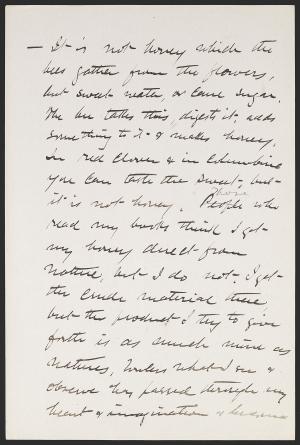 — It is not honey which the
bees gather from the flowers,
but sweet water, or cane sugar.
The bee takes this, digests it, adds
something to it & makes honey.
In red clover & in columbine
you can taste the sweet, but
it is not honey. Those People who
read my books think I get
my honey direct from
nature, but I do not. I get
the crude material there
but the product I try to give
forth is as much mine as
natures, Unless what I see &
observe has passed through my
heart & imagination &